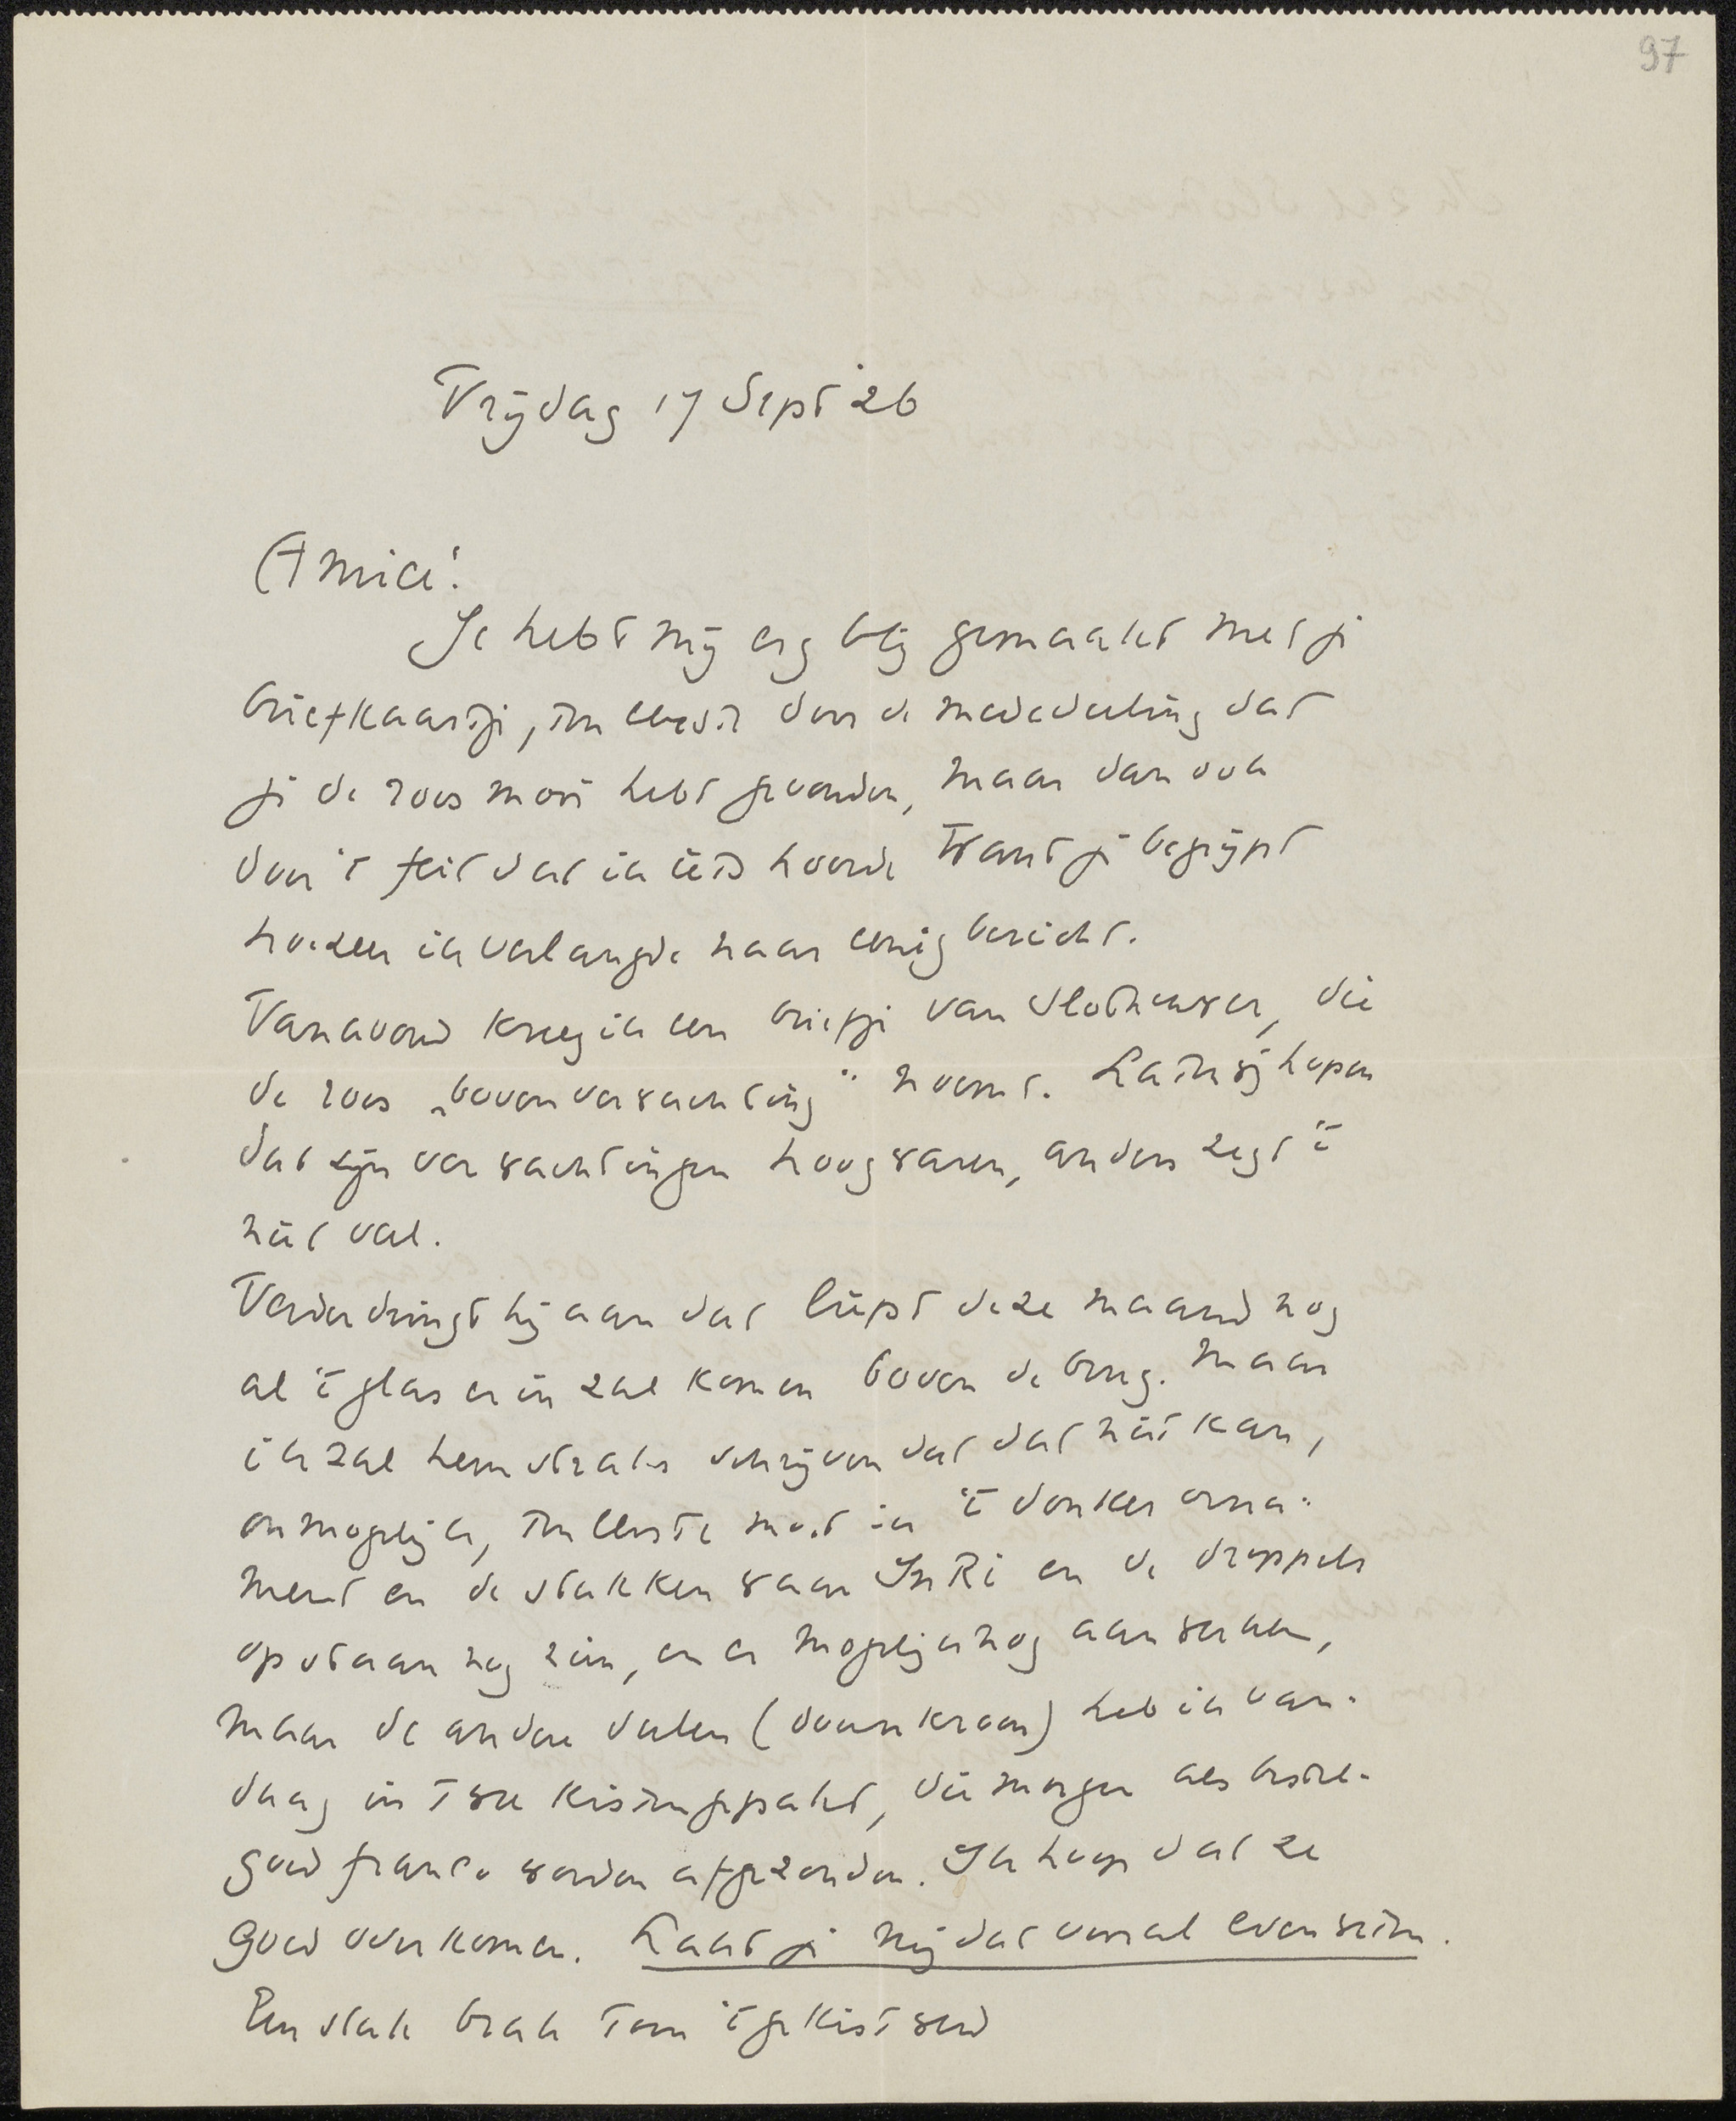 97
Vrijdag 17 Sept '26
Amice!
Je hebt mij erg blij gemaakt met je
briefkaartje, ten eerste door de mededeeling dat
je de roos mooi hebt gevonden, maar dan ook
door 't feit dat ik iets hoorde want je begrijpt
hoezeer ik verlangde naar eenig bericht.
Vanavond kreeg ik een briefje van Slothouwer, die
de roos „boven verwachting" noemt. Laten wij hopen
dat zijn verwachtingen hoog waren, anders zegt 't
niet veel.
Verder dringt hij aan dat liefst deze maand nog
al 't glas er in zal komen boven de brug. Maar
ik zal hem straks schrijven dat dat niet kan,
onmogelijk, ten eerste moet ik 't donker orna-
ment en de stukken waar INRI en de droppels
op staan nog zien, en er mogelijk nog aan werken,
maar de andere deelen (doornkroon) heb ik van-
daag in twee kisten gepakt, die morgen als bestel-
goed franco worden afgezonden. Ik hoop dat ze
goed overkomen. Laat je mij dat vooral even weten.
Een stuk brak toen 't gekist werd